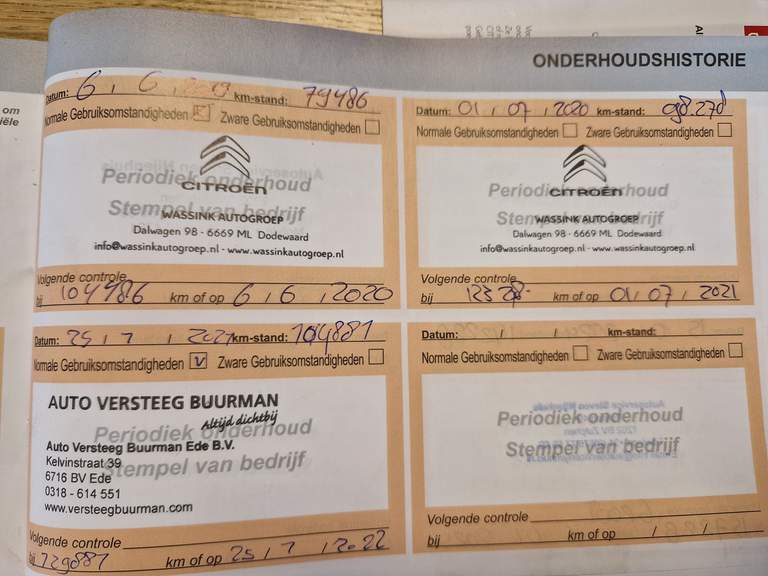 ONDERHOUDSHISTORIE
om
iële
Datum: 6 , 6 , 2019 km-stand: 79486
Normale Gebruiksomstandigheden Zware Gebruiksomstandigheden
Periodiek onderhoud
CITROËN
Stempel van bedrijf
WASSINK AUTOGROEP
Dalwagen 98 - 6669 ML Dodewaard
info@wassinkautogroep.nl - www.wassinkautogroep.nl
Volgende controle
bij 104486 km of op 6 , 6 , 2020
Datum: 01 , 07 , 2020 km-stand: 98.278
Normale Gebruiksomstandigheden Zware Gebruiksomstandigheden
Periodiek onderhoud
CITROËN
Stempel van bedrijf
WASSINK AUTOGROEP
Dalwagen 98 - 6669 ML Dodewaard
info@wassinkautogroep.nl - www.wassinkautogroep.nl
Volgende controle
bij km of op 01 , 07 , 2021
Datum: 25 , 7 , 2021 km-stand: 104881
Normale Gebruiksomstandigheden V Zware Gebruiksomstandigheden
AUTO VERSTEEG BUURMAN
Altijd dichtbij
Periodiek onderhoud
Auto Versteeg Buurman Ede B.V.
Kelvinstraat 39
Stempel van bedrijf
6716 BV Ede
0318 - 614 551
www.versteegbuurman.com
Volgende controle
bij 129881 km of op 25 , 7 , 2022
Datum: / / km-stand:
Normale Gebruiksomstandigheden Zware Gebruiksomstandigheden
Periodiek onderhoud
Stempel van bedrijf
Volgende controle
bij km of op / /